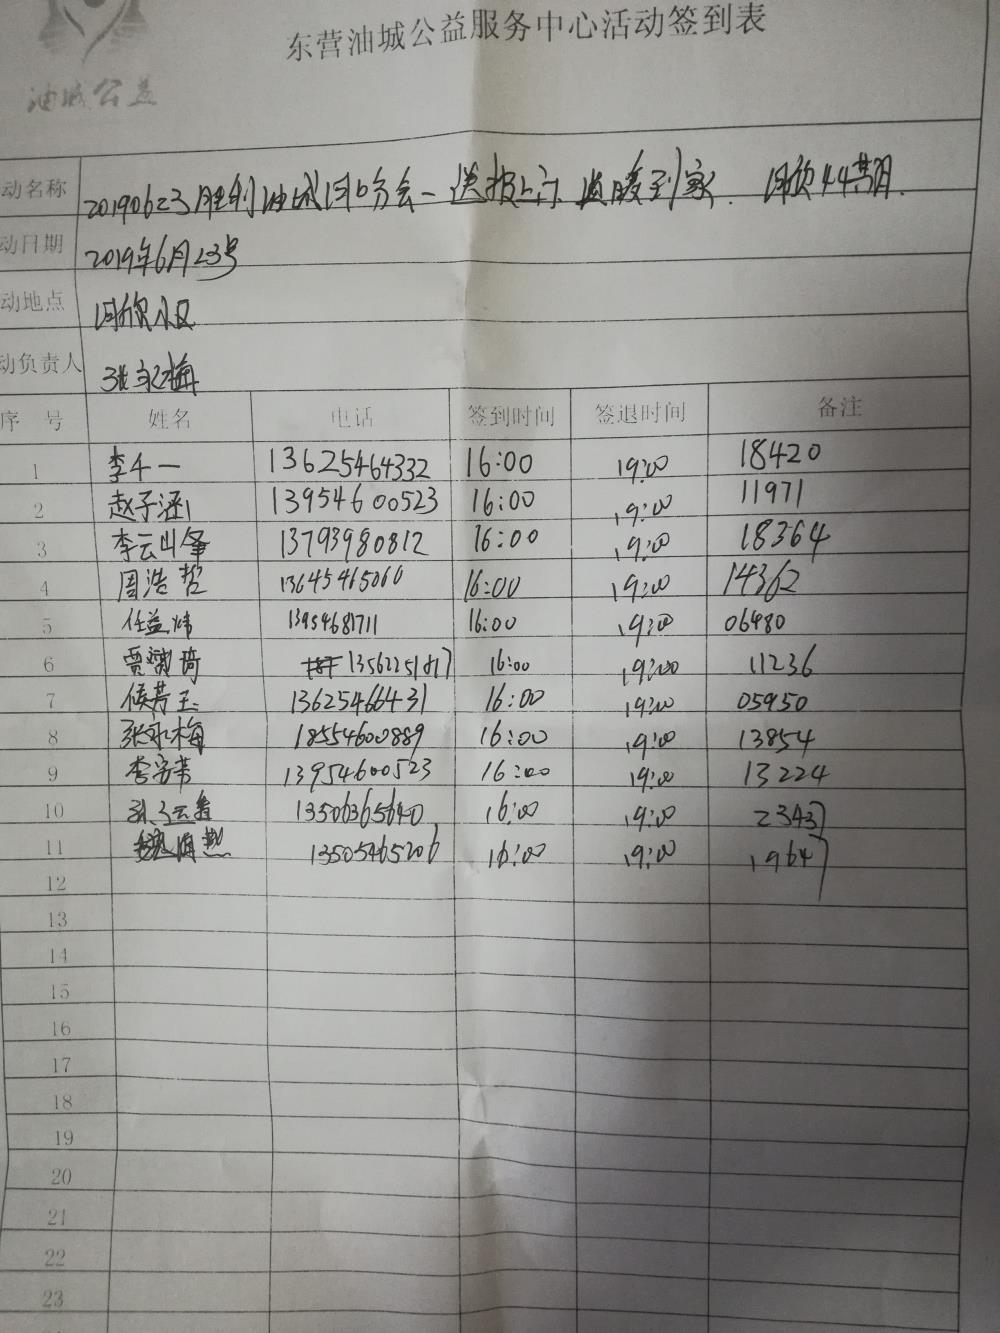 东营油城公益服务中心活动签到表
油城公益
动名称 20190623胜利油城 分会-送报上门 温暖到家. 同欣44期.
动日期 2019年6月23号
动地点 同欣小区
动负责人 张永梅
序 号 姓名 电话 签到时间 签退时间 备注
1 李千一 13625464332 16:00 19:00 18420
2 赵子涵 13954600523 16:00 19:00 11971
3 李云 13793980812 16:00 19:00 18364
4 周浩哲 13645465060 16:00 19:00 14362
5 任益炜 13954681711 16:00 19:00 06480
6 贾 琦 16:00 19:00 11236
7 侯芳玉 13625466431 16:00 19:00 05950
8 张永梅 18554600889 16:00 19:00 13854
9 李安芾 13954600523 16:00 19:00 13224
10 13506365640 16:00 19:00 23437
11 13505465206 16:00 19:00 19647
12
13
14
15
16
17
18
19
20
21
22
23